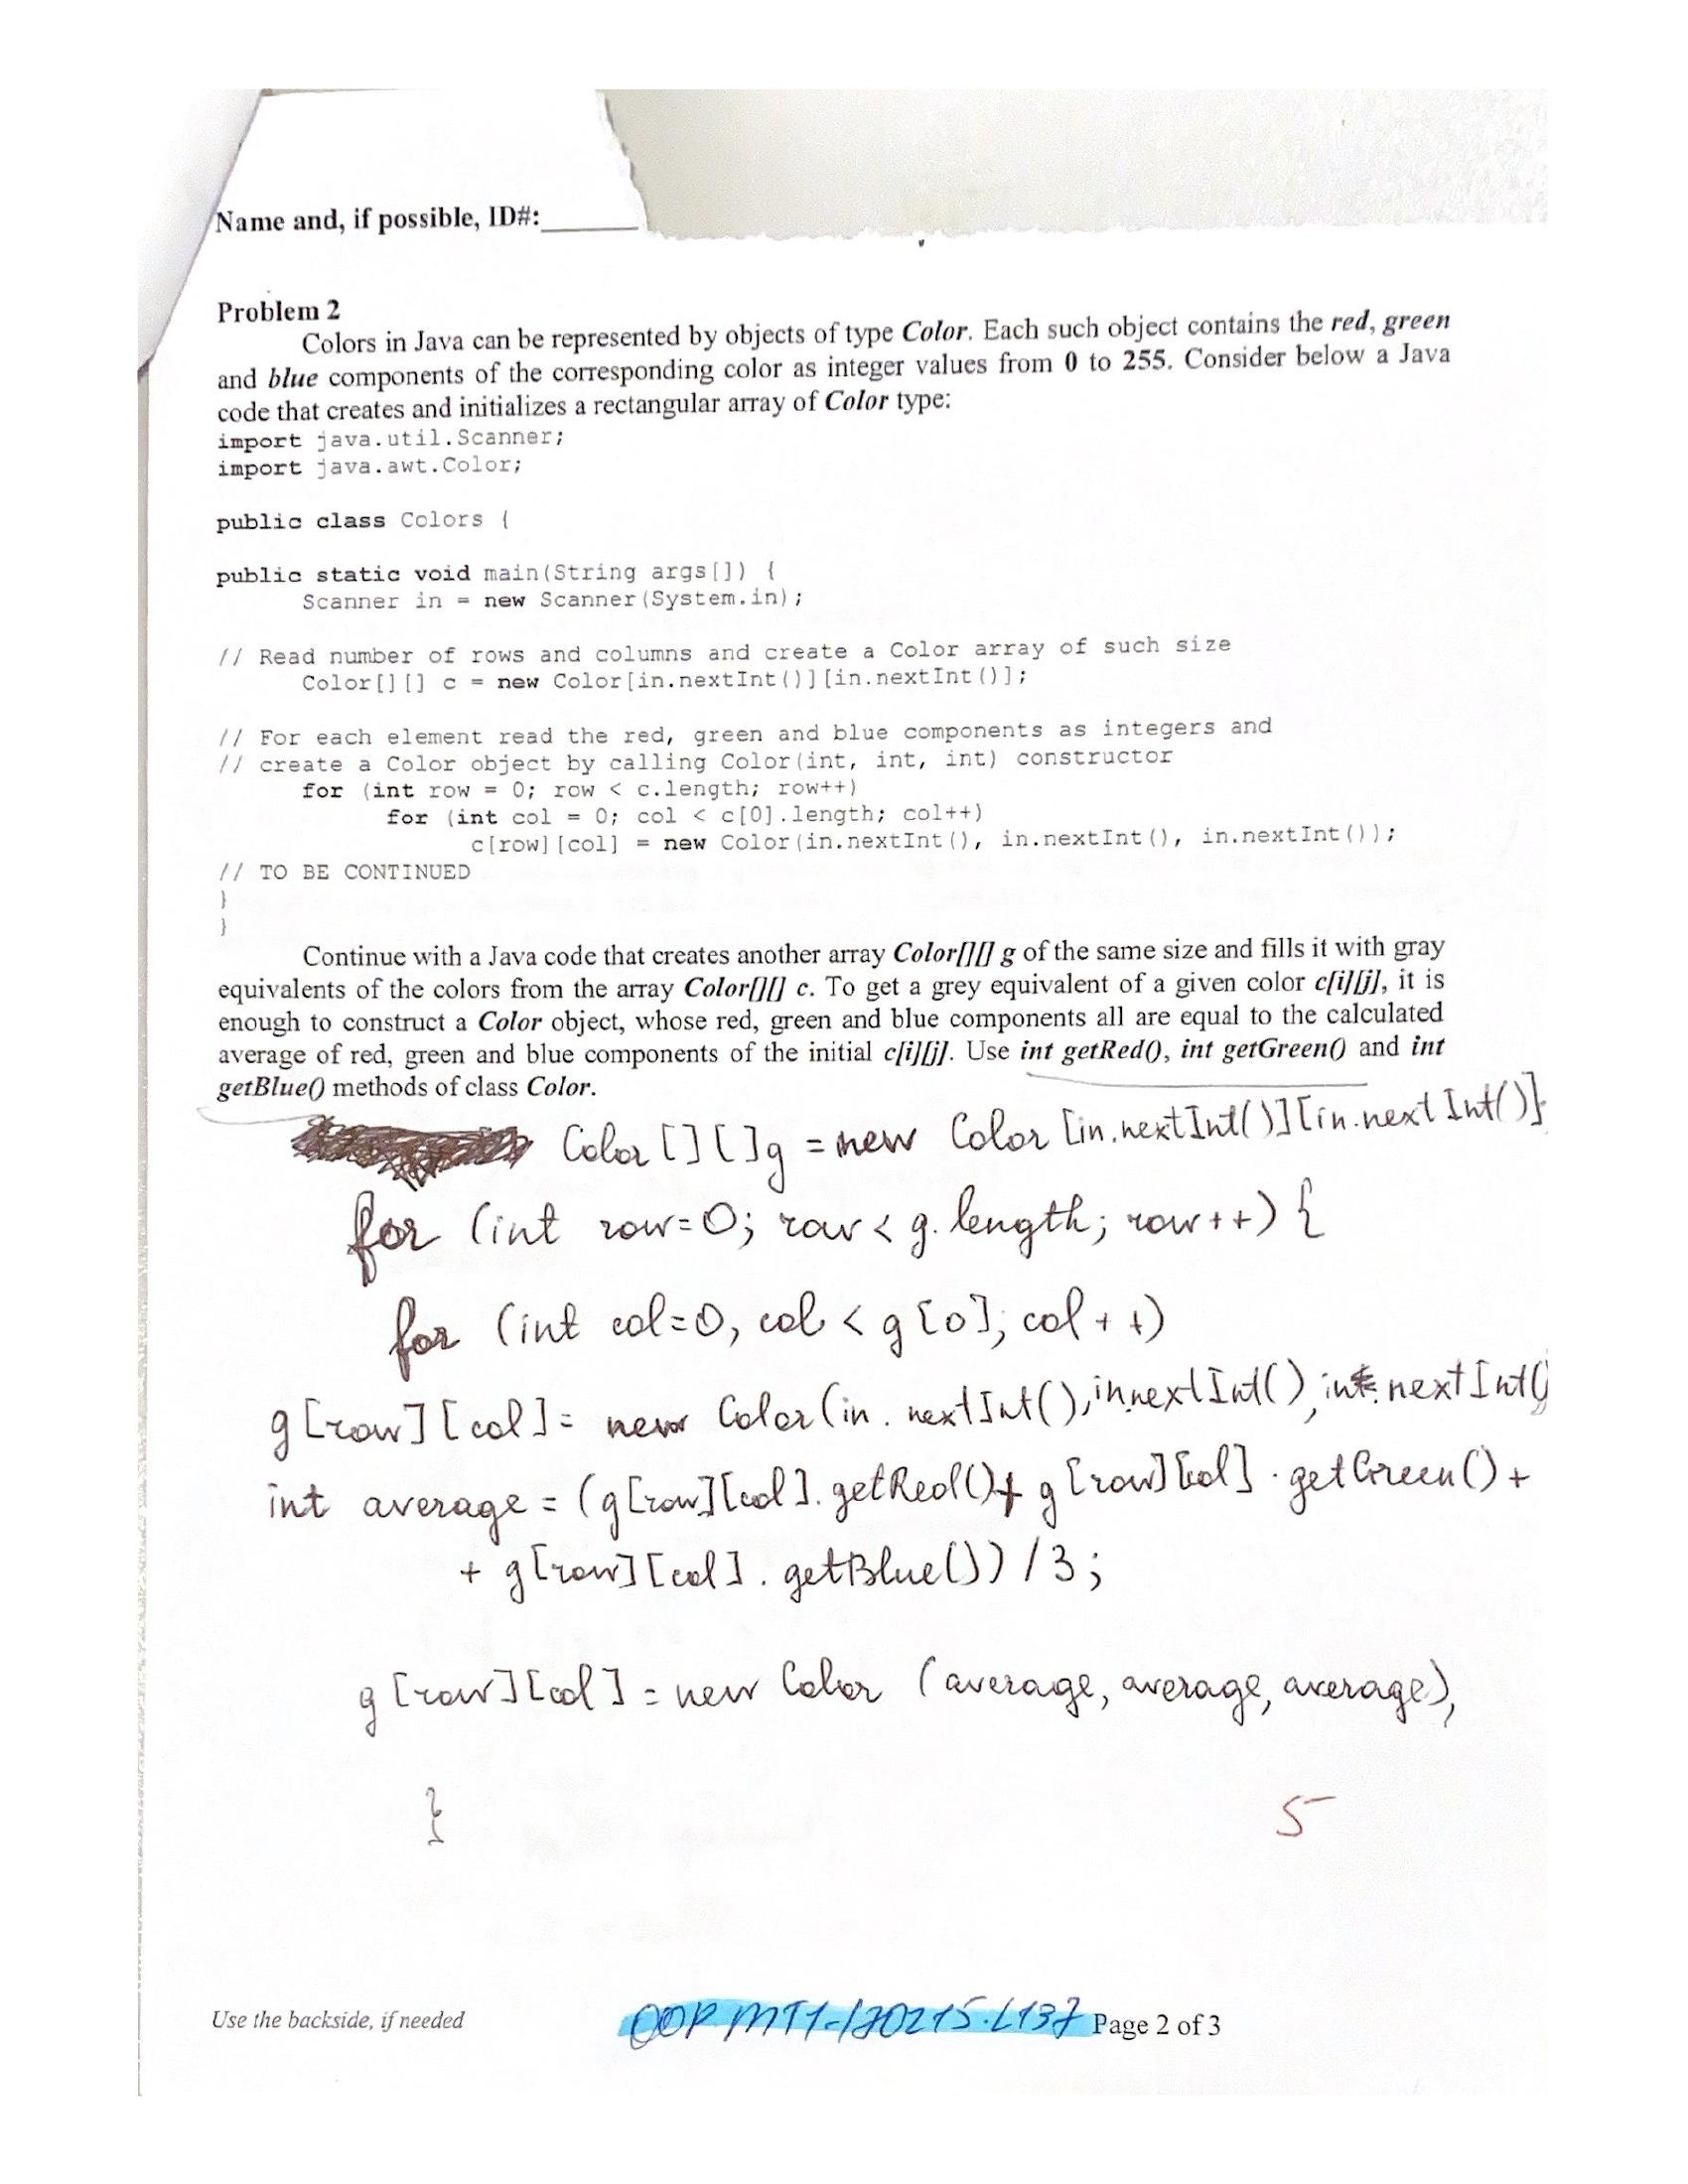 Name and, if possible, ID#:
Problem 2
Colors in Java can be represented by objects of type Color. Each such object contains the red, green
and blue components of the corresponding color as integer values from 0 to 255. Consider below a Java
code that creates and initializes a rectangular array of Color type:
import java.util.Scanner;
import java.awt.Color;
public class Colors {
public static void main(String args[]) {
Scanner in = new Scanner(System.in);
// Read number of rows and columns and create a Color array of such size
Color[][] c = new Color[in.nextInt()][in.nextInt()];
// For each element read the red, green and blue components as integers and
// create a Color object by calling Color(int, int, int) constructor
for (int row = 0; row < c.length; row++)
for (int col = 0; col < c[0].length; col++)
c[row][col] = new Color(in.nextInt(), in.nextInt(), in.nextInt());
// TO BE CONTINUED
}
}
Continue with a Java code that creates another array Color[][] g of the same size and fills it with gray
equivalents of the colors from the array Color[][] c. To get a grey equivalent of a given color c[i][j], it is
enough to construct a Color object, whose red, green and blue components all are equal to the calculated
average of red, green and blue components of the initial c[i][j]. Use int getRed(), int getGreen() and int
getBlue() methods of class Color.
Color [] [] g = new Color [in.nextInt()][in.nextInt()];
for (int row=0; row < g.length; row++) {
for (int col=0, col < g[0]; col++)
g[row][col]= new Color(in.nextInt(), in.nextInt(), int.nextInt()
int average = (g[row][col].getRed()+ g[row][col].getGreen() +
+ g[row][col].getBlue()) /3;
g[row][col] = new Color (average, average, average),
}
5
Use the backside, if needed
OOP MT1-170215.L137 Page 2 of 3